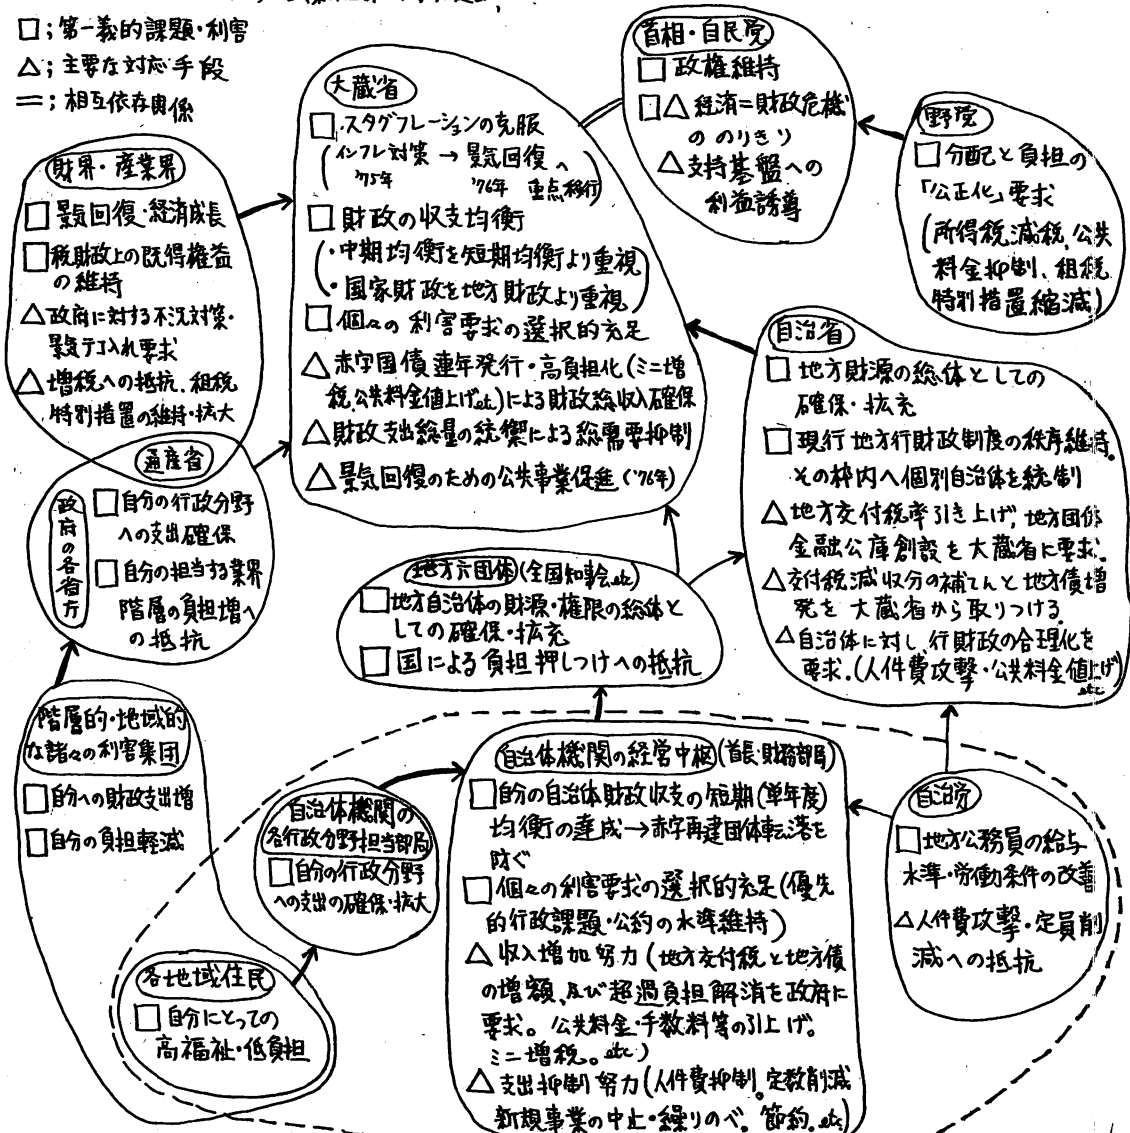 □；第一義的課題・利害
△；主要な対応手段
＝；相互依存関係
首相・自民党
□ 政権維持
□△ 経済＝財政危機
の のりきり
△ 支持基盤への
利益誘導
野党
□ 分配と負担の
「公正化」要求
(所得税減税、公共
料金抑制、租税
特別措置縮減)
大蔵省
□ スタグフレーションの克服
(インフレ対策 → 景気回復へ
'75年 '76年 重点移行)
□ 財政の収支均衡
(・中期均衡を短期均衡より重視
・国家財政を地方財政より重視)
□ 個々の利害要求の選択的充足
△ 赤字国債連年発行・高負担化(ミニ増
税、公共料金値上げetc)による財政総収入確保
△ 財政支出総量の統禦による総需要抑制
△ 景気回復のための公共事業促進('76年)
財界・産業界
□ 景気回復・経済成長
□ 税財政上の既得権益
の維持
△ 政府に対する不況対策・
景気テコ入れ要求
△ 増税への抵抗、租税
特別措置の維持・拡大
通産省
政府の各省庁
□ 自分の行政分野
への支出確保
□ 自分の担当する業界
階層の負担増へ
の抵抗
自治省
□ 地方財源の総体としての
確保・拡充
□ 現行地方行財政制度の秩序維持。
その枠内へ個別自治体を統制
△ 地方交付税率引き上げ、地方団体
金融公庫創設を大蔵省に要求。
△ 交付税減収分の補てんと地方債増
発を大蔵省から取りつける
△ 自治体に対し、行財政の合理化を
要求。(人件費攻撃・公共料金値上げ
etc)
地方六団体(全国知事会etc)
□ 地方自治体の財源・権限の総体と
しての確保・拡充
□ 国による負担押しつけへの抵抗
階層的・地域的
な諸々の利害集団
□ 自分への財政支出増
□ 自分の負担軽減
自治体機関の
各行政分野担当部局
□ 自分の行政分野
への支出の確保・拡大
各地域住民
□ 自分にとっての
高福祉・低負担
自治体機関の経営中枢(首長・財務部局)
□ 自分の自治体財政収支の短期(単年度)
均衡の達成→赤字再建団体転落を
防ぐ
□ 個々の利害要求の選択的充足(優先
的行政課題・公約の水準維持)
△ 収入増加努力(地方交付税と地方債
の増額、及び超過負担解消を政府に
要求。公共料金・手数料等の引上げ。
ミニ増税。etc)
△ 支出抑制努力(人件費抑制。定数削減
新規事業の中止・繰りのべ。節約。etc)
自治労
□ 地方公務員の給与
水準・労働条件の改善
△ 人件費攻撃・定員削
減への抵抗